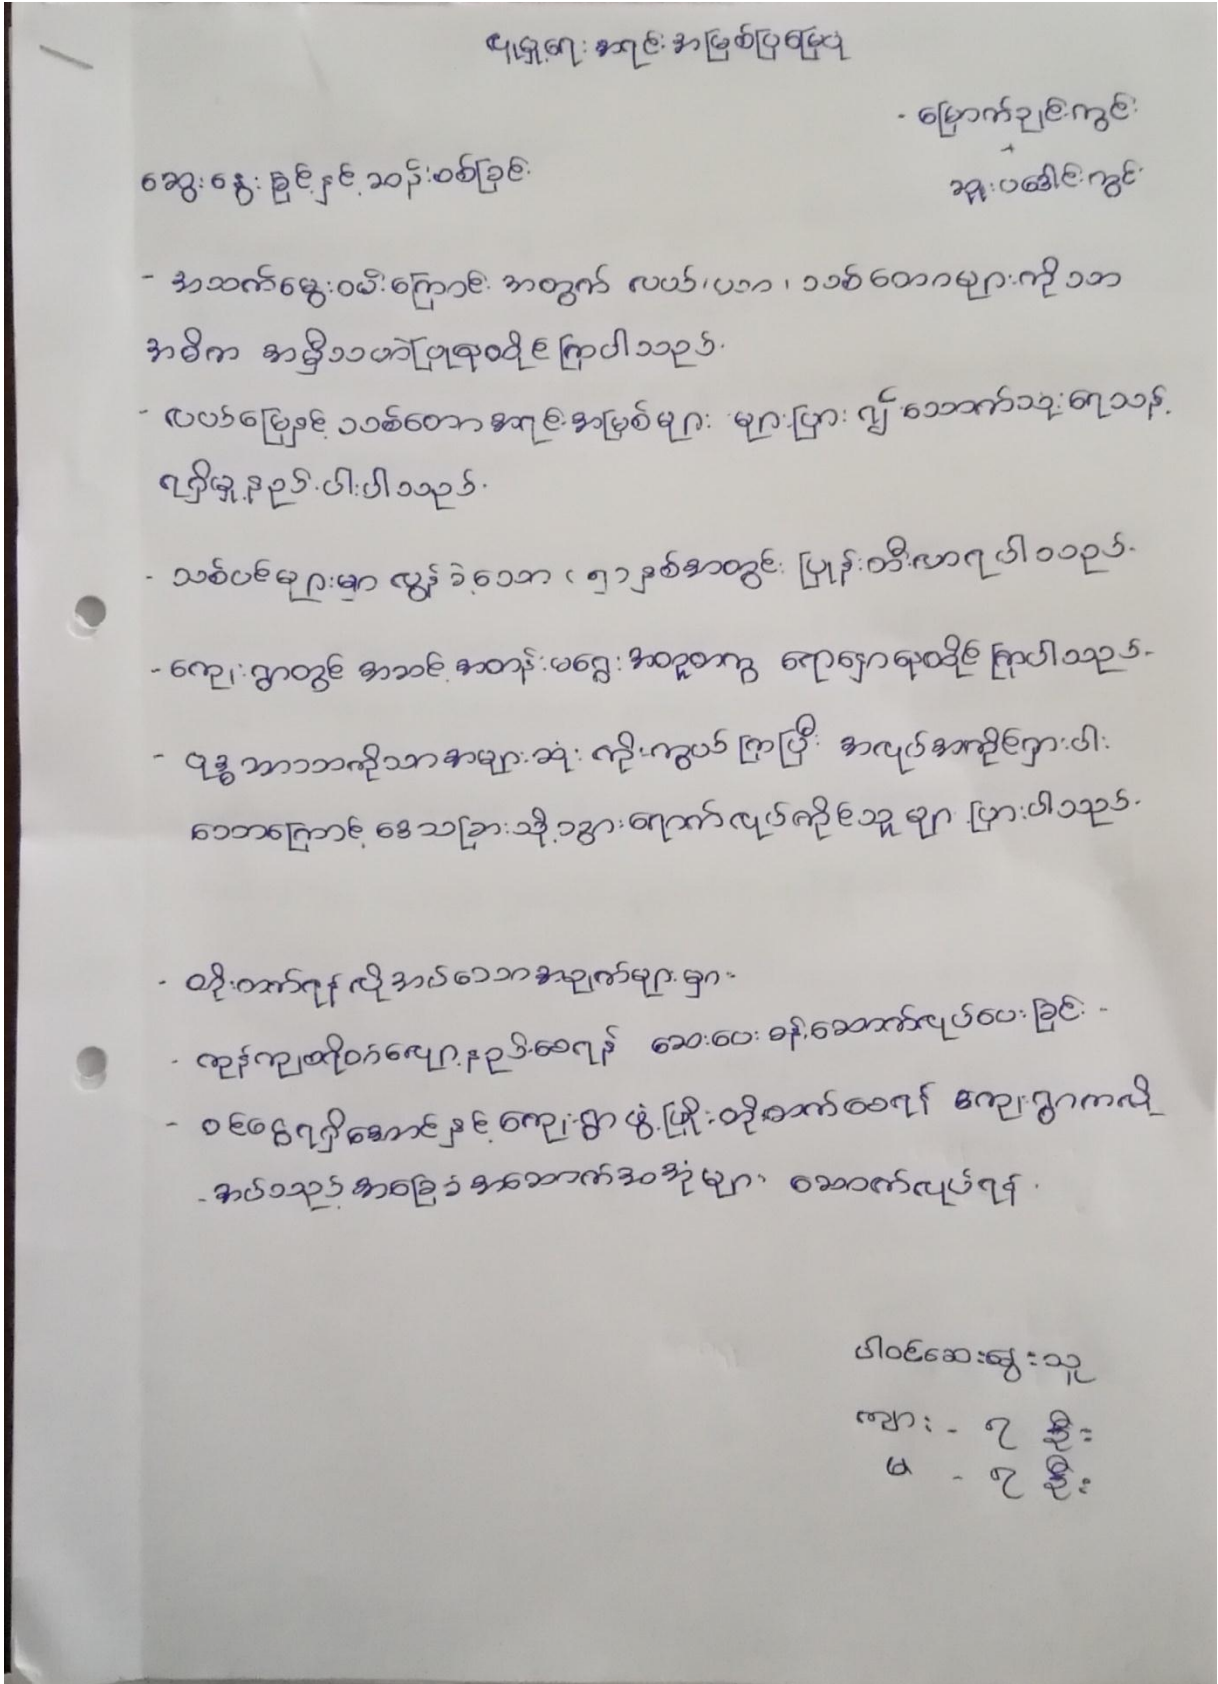 လူမှုရေး အရင်းအမြစ်ပြမြေပုံ
- မြောက်ချင်းကွင်း
+
ဆူးပဒေါင်းကွင်း
ဆွေးနွေးခြင်းနှင့် ဆန်းစစ်ခြင်း
- အသက်မွေးဝမ်းကြောင်း အတွက် လယ်၊ယာ၊ သစ်တောများကိုသာ
အဓိက အမှီသဟဲပြုနေထိုင်ကြပါသည်။
- လယ်မြေနှင့် သစ်တောအရင်းအမြစ်များ များပြားလျှံ သောက်သုံးရေသန့်
ရရှိမှု နည်းပါးပါသည်။
- သစ်ပင်များမှာ လွန်ခဲ့သော (၅) နှစ်အတွင်း ပြုန်းတီးလာရပါသည်။
- ကျေးရွာတွင် အဆင့်အတန်းမရွေး အတူတကွ ရောနှောနေထိုင်ကြပါသည်။
- ဗုဒ္ဓဘာသာကိုသာအများဆုံး ကိုးကွယ်ကြပြီး အလုပ်အကိုင်ရှားပါး
သောကြောင့် ဒေသခြားသို့သွားရောက်လုပ်ကိုင်သူများပြားပါသည်။
- တိုးတက်ရန်လိုအပ်သောအချက်များမှာ-
- ကုန်ကျစရိတ်လျော့နည်းစေရန် ဆေးပေးခန်းဆောက်လုပ်ပေးခြင်း -
- ဝင်ငွေရရှိအောင်နှင့် ကျေးရွာဖွံ့ဖြိုးတိုးတက်စေရန် ကျေးရွာကလို
- အပ်သည့် အခြေခံအဆောက်အအုံများ ဆောက်လုပ်ရန်.
ပါဝင်ဆေးနွေးသူ
ကျား - ၇ ဦး
မ - ၇ ဦး